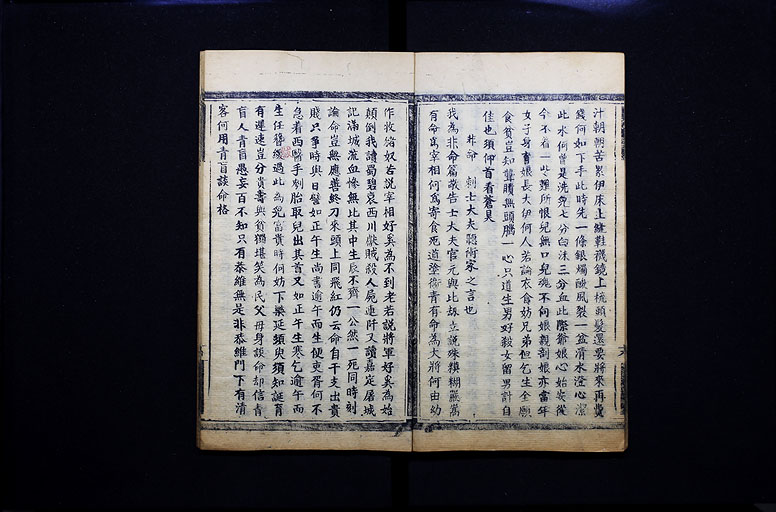 汁朝朝苦累伊床上縫鞋襪鏡上梳頭髮還要將來再糞
錢何如下手此時先一條銀燭酸風裂一盆清水澄心潔
此水何曾是洗兒七分白沫三分血此際爺娘心始安後
今不着一些難所恨兒無口兒魂不向娘親剖娘亦當年
女子身育娘長大伊何人若論衣食妨兄弟但乞生全願
食貧豈知聾聵無頭腦一心只道生男好殺女留男計自
佳也須仰首看蒼昊
非命 刺士大夫聽術家之言也
我為非命篇敬告士大夫官元與比劫立說殊糢糊無萬
有命為宰相何為寄食死道塗衛青有命為大將何由幼
作牧猪奴若說宰相好奚為不到老若說將軍好奚為始
顛倒我讀蜀碧哀西川獻賊殺人屍連阡又讀嘉定屠城
記滿城流血慘無比其中生辰不齊一公然一死同時刻
論命豈無應善終刀來頭上同飛紅仍云命自干支出貴
賤只爭時與日譬如正午生尚書逾午而生便吏胥何不
急着西醫手刳胎取兒出其首又如正午生寒乞逾午而
生任督緩過此為兒富貴時何妨下藥延頻臾須知誕育
有遲速豈分貴壽與貧獨堪笑為民父母身談命却信青
盲人青盲愚妄百不知只有恭維無是非恭維門下有清
客何用青盲談命格